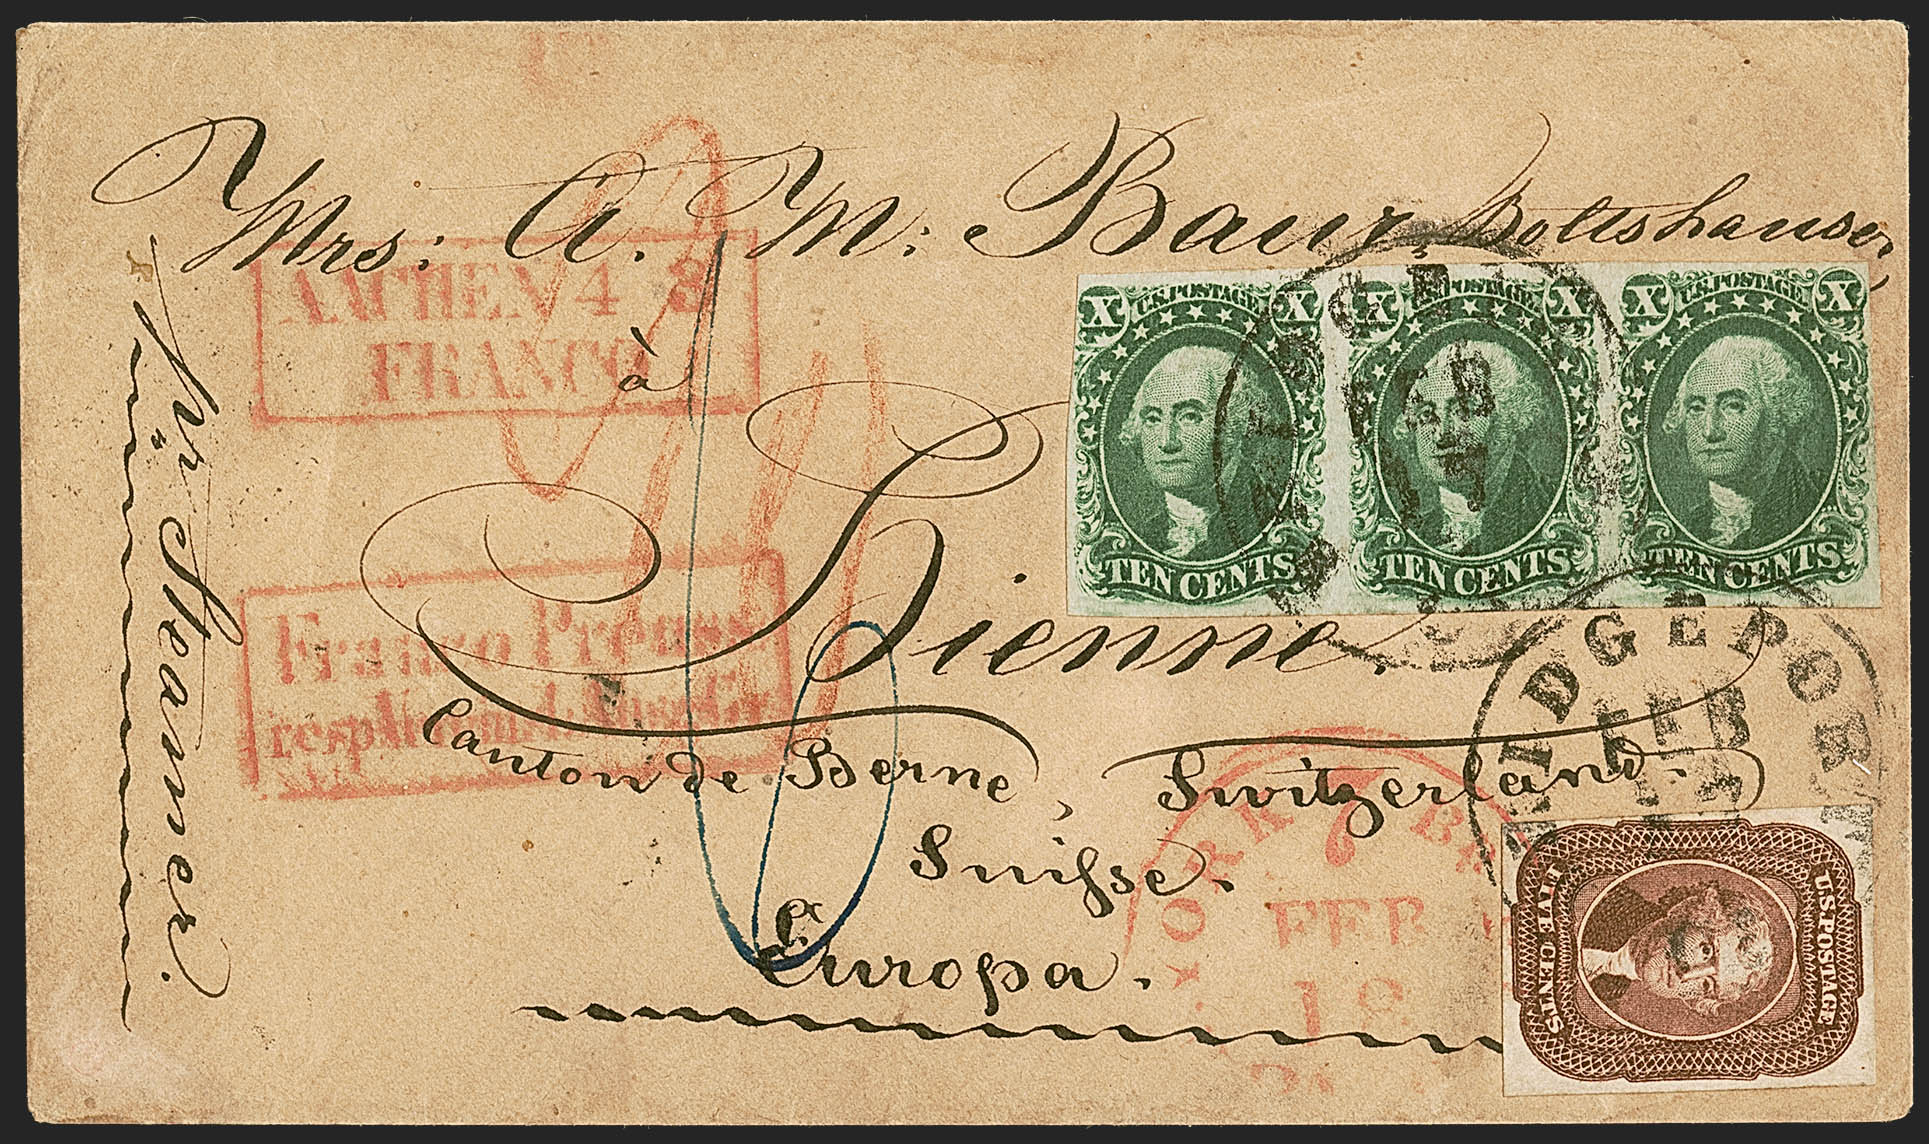 Mrs. A. M. Baur, Boltshauser,
à
Bienne.
Canton de Berne, Switzerland.
Suisse.
Europa.
pr Steamer.
AACHEN 4 3
FRANCO
Franco Preuss
resp
X U.S. POSTAGE X
TEN CENTS
X U.S. POSTAGE X
TEN CENTS
X U.S. POSTAGE X
TEN CENTS
FEB
17
IDGEPOR
FEB
YORK
7
FEB
18
U.S. POSTAGE
FIVE CENTS